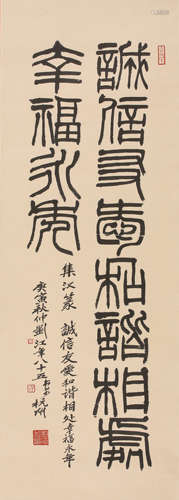 誠信友愛和諧相處
幸福永年
集汉篆 誠信友愛和谐相处幸福永年
庚寅秋仲劉江年八十五书于杭州